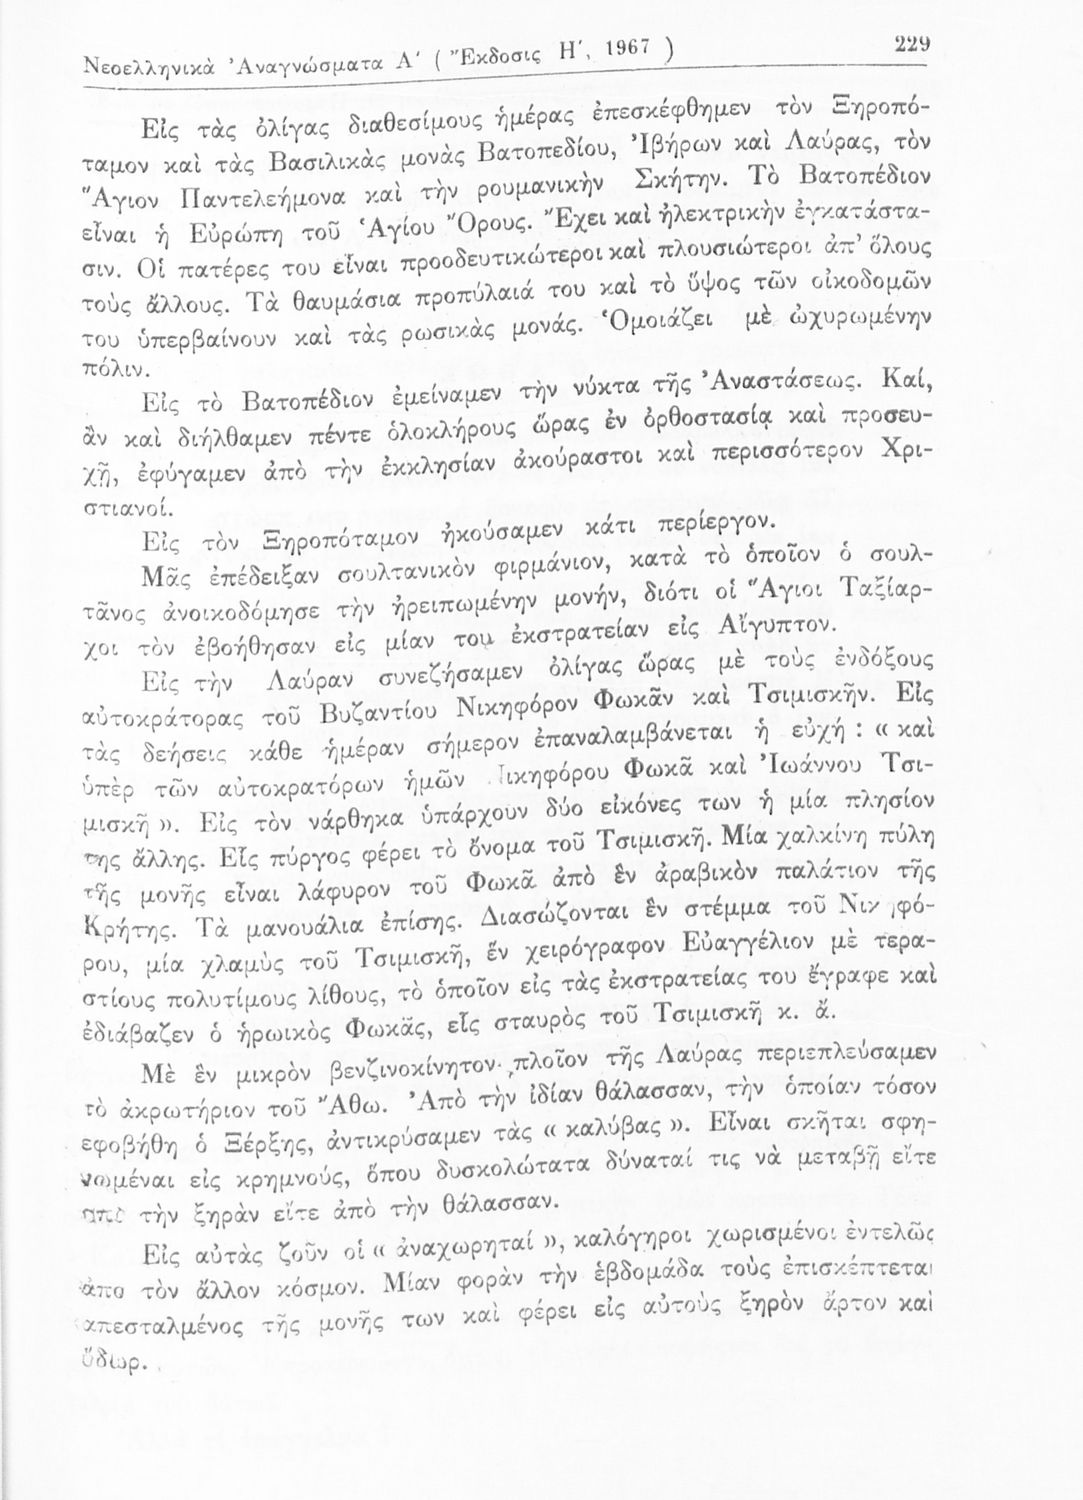 Νεοελληνικὰ Ἀναγνώσματα Α΄ ( Ἔκδοσις Η΄, 1967 ) 229
Εἰς τὰς ὀλίγας διαθεσίμους ἡμέρας ἐπεσκέφθημεν τὸν Ξηροπό-
ταμον καὶ τὰς Βασιλικὰς μονὰς Βατοπεδίου, Ἰβήρων καὶ Λαύρας, τὸν
Ἅγιον Παντελεήμονα καὶ τὴν ρουμανικὴν Σκήτην. Τὸ Βατοπέδιον
εἶναι ἡ Εὐρώπη τοῦ Ἁγίου Ὄρους. Ἔχει καὶ ἠλεκτρικὴν ἐγκατάστα-
σιν. Οἱ πατέρες του εἶναι προοδευτικώτεροι καὶ πλουσιώτεροι ἀπ’ ὅλους
τοὺς ἄλλους. Τὰ θαυμάσια προπύλαιά του καὶ τὸ ὕψος τῶν οἰκοδομῶν
του ὑπερβαίνουν καὶ τὰς ρωσικὰς μονάς. Ὁμοιάζει μὲ ὠχυρωμένην
πόλιν.
Εἰς τὸ Βατοπέδιον ἐμείναμεν τὴν νύκτα τῆς Ἀναστάσεως. Καί,
ἂν καὶ διήλθαμεν πέντε ὁλοκλήρους ὥρας ἐν ὀρθοστασίᾳ καὶ προσευ-
χῇ, ἐφύγαμεν ἀπὸ τὴν ἐκκλησίαν ἀκούραστοι καὶ περισσότερον Χρι-
στιανοί.
Εἰς τὸν Ξηροπόταμον ἠκούσαμεν κάτι περίεργον.
Μᾶς ἐπέδειξαν σουλτανικὸν φιρμάνιον, κατὰ τὸ ὁποῖον ὁ σουλ-
τᾶνος ἀνοικοδόμησε τὴν ἠρειπωμένην μονήν, διότι οἱ Ἅγιοι Ταξίαρ-
χοι τὸν ἐβοήθησαν εἰς μίαν του ἐκστρατείαν εἰς Αἴγυπτον.
Εἰς τὴν Λαύραν συνεζήσαμεν ὀλίγας ὥρας μὲ τοὺς ἐνδόξους
αὐτοκράτορας τοῦ Βυζαντίου Νικηφόρον Φωκᾶν καὶ Τσιμισκῆν. Εἰς
τὰς δεήσεις κάθε ἡμέραν σήμερον ἐπαναλαμβάνεται ἡ εὐχή : « καὶ
ὑπὲρ τῶν αὐτοκρατόρων ἡμῶν Νικηφόρου Φωκᾶ καὶ Ἰωάννου Τσι-
μισκῆ ». Εἰς τὸν νάρθηκα ὑπάρχουν δύο εἰκόνες των ἡ μία πλησίον
της ἄλλης. Εἷς πύργος φέρει τὸ ὄνομα τοῦ Τσιμισκῆ. Μία χαλκίνη πύλη
τῆς μονῆς εἶναι λάφυρον τοῦ Φωκᾶ ἀπὸ ἓν ἀραβικὸν παλάτιον τῆς
Κρήτης. Τὰ μανουάλια ἐπίσης. Διασώζονται ἓν στέμμα τοῦ Νικηφό-
ρου, μία χλαμὺς τοῦ Τσιμισκῆ, ἕν χειρόγραφον Εὐαγγέλιον μὲ τερα-
στίους πολυτίμους λίθους, τὸ ὁποῖον εἰς τὰς ἐκστρατείας του ἔγραφε καὶ
ἐδιάβαζεν ὁ ἡρωικὸς Φωκᾶς, εἷς σταυρὸς τοῦ Τσιμισκῆ κ. ἄ.
Μὲ ἓν μικρὸν βενζινοκίνητον πλοῖον τῆς Λαύρας περιεπλεύσαμεν
τὸ ἀκρωτήριον τοῦ Ἄθω. Ἀπὸ τὴν ἰδίαν θάλασσαν, τὴν ὁποίαν τόσον
εφοβήθη ὁ Ξέρξης, ἀντικρύσαμεν τὰς « καλύβας ». Εἶναι σκῆται σφη-
νωμέναι εἰς κρημνούς, ὅπου δυσκολώτατα δύναταί τις νὰ μεταβῇ εἴτε
ἀπὸ τὴν ξηρὰν εἴτε ἀπὸ τὴν θάλασσαν.
Εἰς αὐτὰς ζοῦν οἱ « ἀναχωρηταί », καλόγηροι χωρισμένοι ἐντελῶς
ἀπο τὸν ἄλλον κόσμον. Μίαν φορὰν τὴν ἑβδομάδα τοὺς ἐπισκέπτεται
ἀπεσταλμένος τῆς μονῆς των καὶ φέρει εἰς αὐτοὺς ξηρὸν ἄρτον καὶ
ὕδωρ.